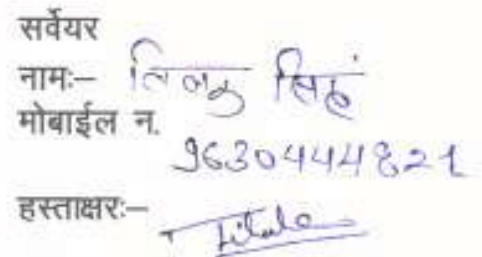 सर्वेयर
नामः– तिलकु सिंह
मोबाईल न.
9630444821
हस्ताक्षरः–